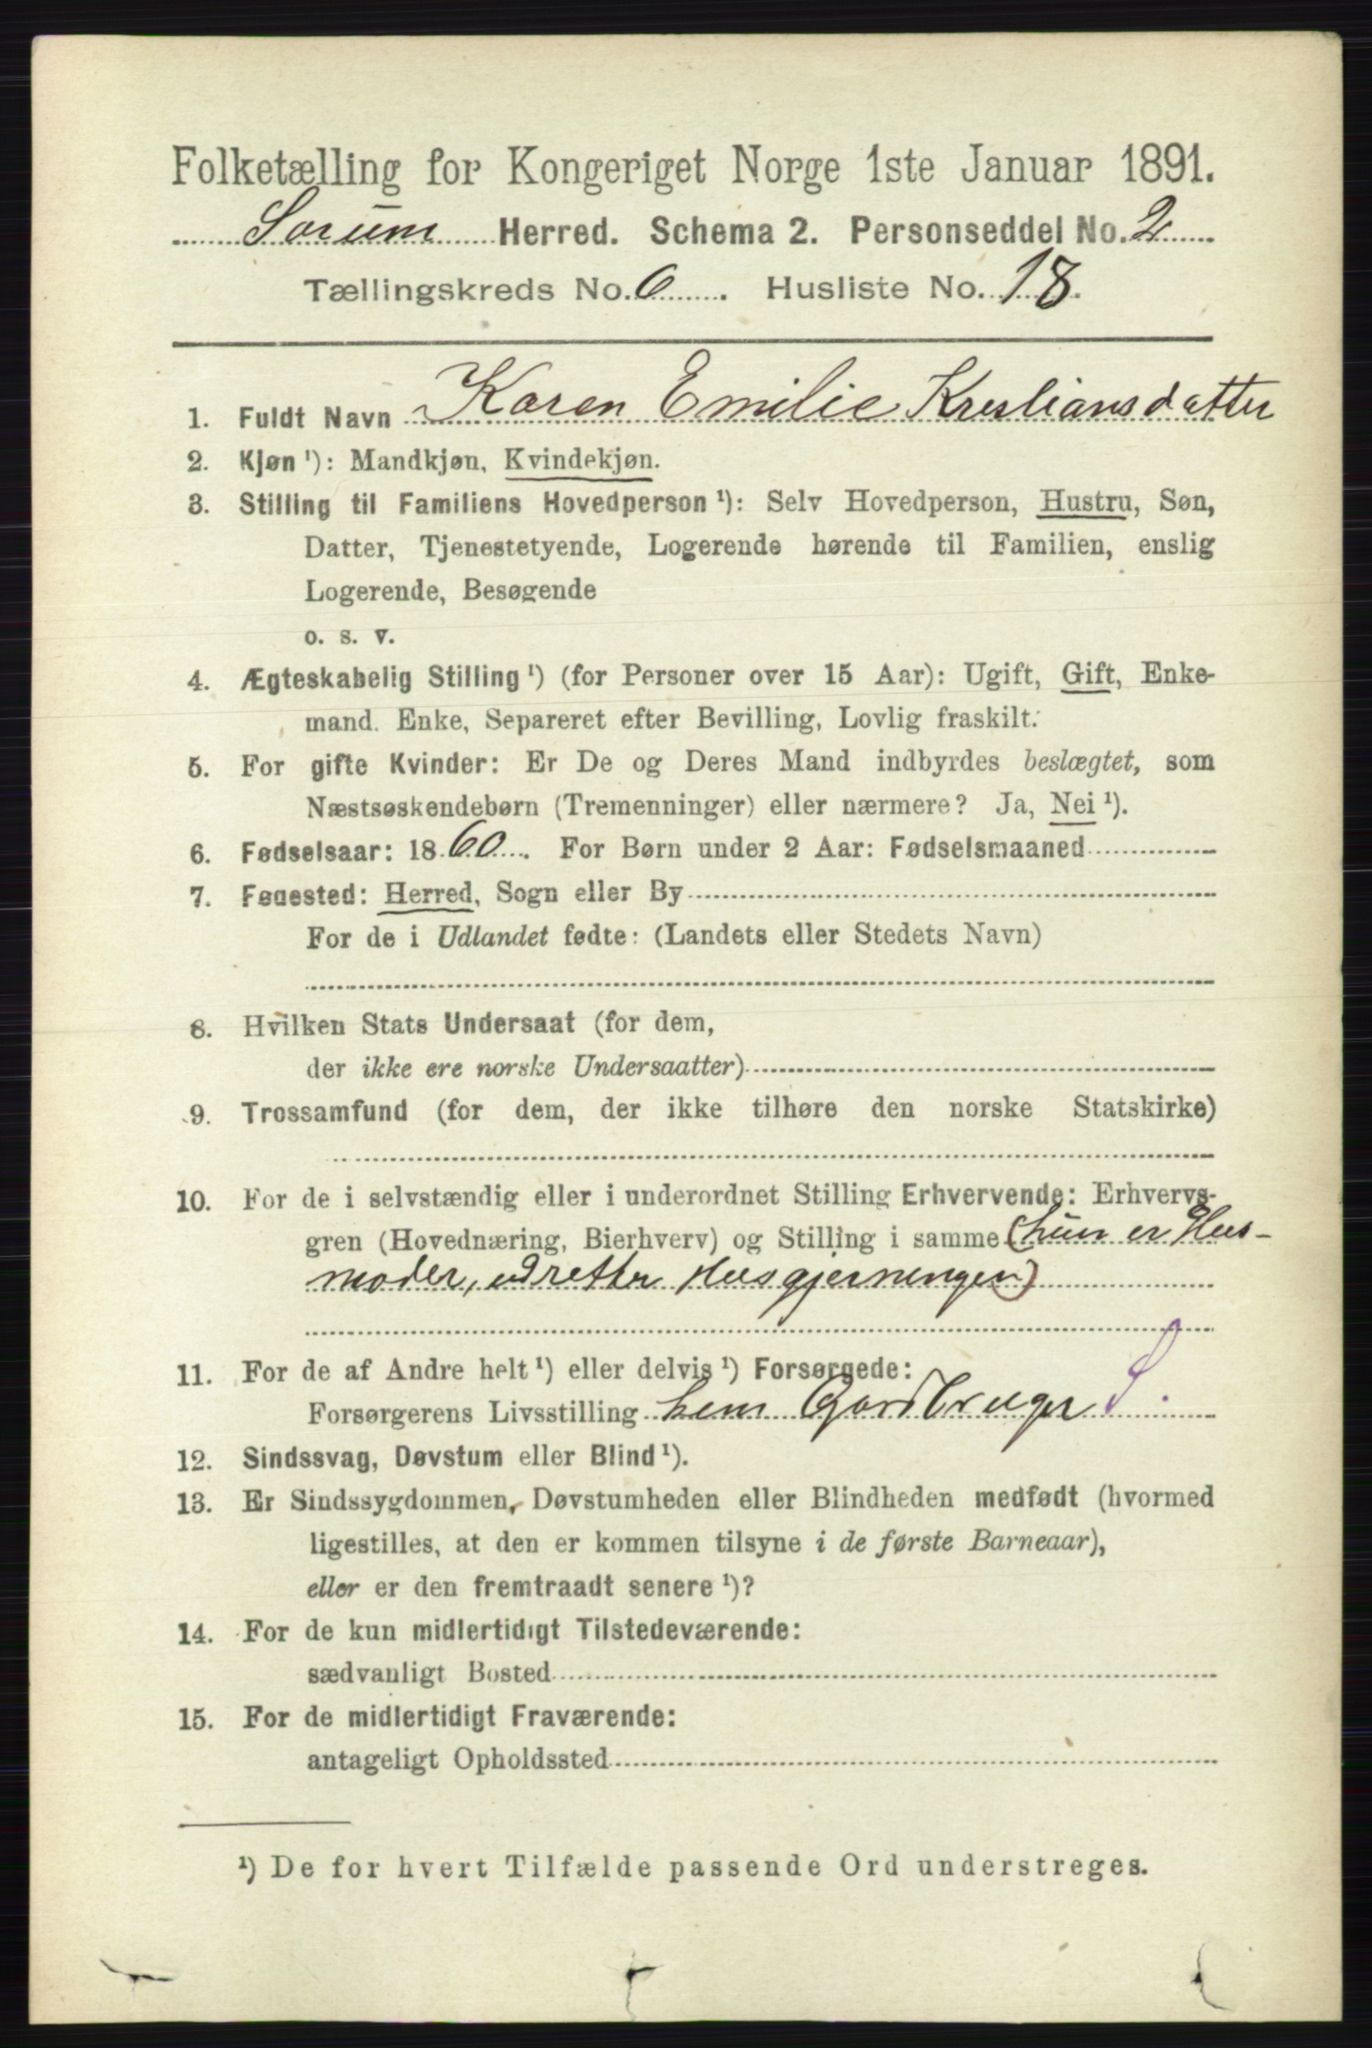 Folketælling for Kongeriget Norge 1ste Januar 1891.
Sørum Herred. Schema 2. Personseddel No. 2
Tællingskreds No. 6. Husliste No. 18.
1. Fuldt Navn Karen Emilie Kristiansdatter
2. Kjøn ¹): Mandkjøn, Kvindekjøn.
3. Stilling til Familiens Hovedperson ¹): Selv Hovedperson, Hustru, Søn,
Datter, Tjenestetyende, Logerende hørende til Familien, enslig
Logerende, Besøgende
o. s. v.
4. Ægteskabelig Stilling ¹) (for Personer over 15 Aar): Ugift, Gift, Enke-
mand. Enke, Separeret efter Bevilling, Lovlig fraskilt.
5. For gifte Kvinder: Er De og Deres Mand indbyrdes beslægtet, som
Næstsøskendebørn (Tremenninger) eller nærmere? Ja, Nei ¹).
6. Fødselsaar: 1860. For Børn under 2 Aar: Fødselsmaaned
7. Fødested: Herred, Sogn eller By
For de i Udlandet fødte: (Landets eller Stedets Navn)
8. Hvilken Stats Undersaat (for dem,
der ikke ere norske Undersaatter)
9. Trossamfund (for dem, der ikke tilhøre den norske Statskirke)
10. For de i selvstændig eller i underordnet Stilling Erhvervende: Erhvervs-
gren (Hovednæring, Bierhverv) og Stilling i samme (hun er Hus-
moder, udretter Husgjerningen)
11. For de af Andre helt ¹) eller delvis ¹) Forsørgede:
Forsørgerens Livsstilling Gardbruger S.
12. Sindssvag, Døvstum eller Blind ¹).
13. Er Sindssygdommen, Døvstumheden eller Blindheden medfødt (hvormed
ligestilles, at den er kommen tilsyne i de første Barneaar),
eller er den fremtraadt senere ¹)?
14. For de kun midlertidigt Tilstedeværende:
sædvanligt Bosted
15. For de midlertidigt Fraværende:
antageligt Opholdssted
¹) De for hvert Tilfælde passende Ord understreges.